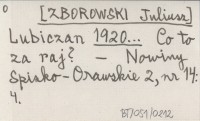 0
[ZBOROWSKI Juliusz]
Lubiczan 1920... Co to
za raj? - Nowiny
Spisko-Orawskie 2, nr 14:
4.
BT/051/0212